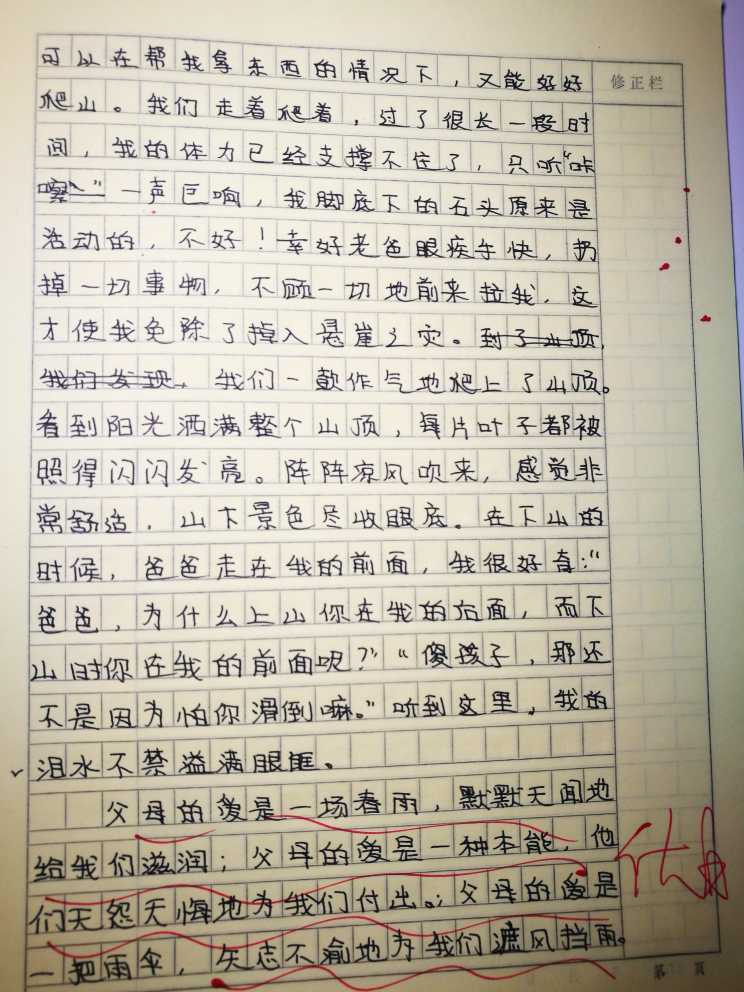 可以在帮我拿东西的情况下，又能好好
修正栏
爬山。我们走着爬着，过了很长一段时
间，我的体力已经支撑不住了，只听“咔
嚓”一声巨响，我脚底下的石头原来是
活动的，不好！幸好老爸眼疾手快，扔
掉一切事物，不顾一切地前来拉我，这
才使我免除了掉入悬崖之灾。到了山顶，
我们发现，我们一鼓作气地爬上了山顶。
看到阳光洒满整个山顶，每片叶子都被
照得闪闪发亮。阵阵凉风吹来，感觉非
常舒适，山下景色尽收眼底。在下山的
时候，爸爸走在我的前面，我很好奇：“
爸爸，为什么上山你在我的后面，而下
山时你在我的前面呢？”“傻孩子，那还
不是因为怕你滑倒嘛。”听到这里，我的
泪水不禁溢满眼眶。
父母的爱是一场春雨，默默无闻地
给我们滋润；父母的爱是一种本能，他
们无怨无悔地为我们付出。；父母的爱是
一把雨伞，矢志不渝地为我们遮风挡雨。
第 页